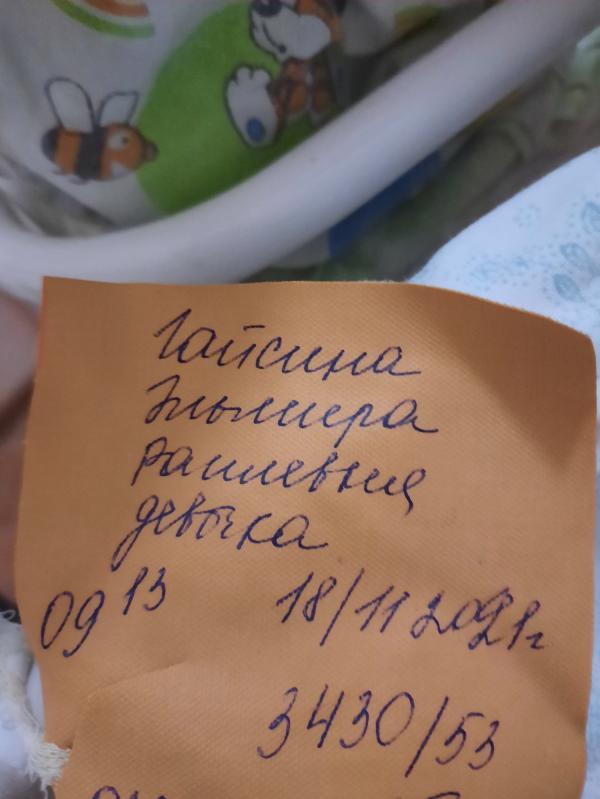 Гайсина
Эльмира
Раилевна
девочка
09 13 18/11 2021г
3430/53